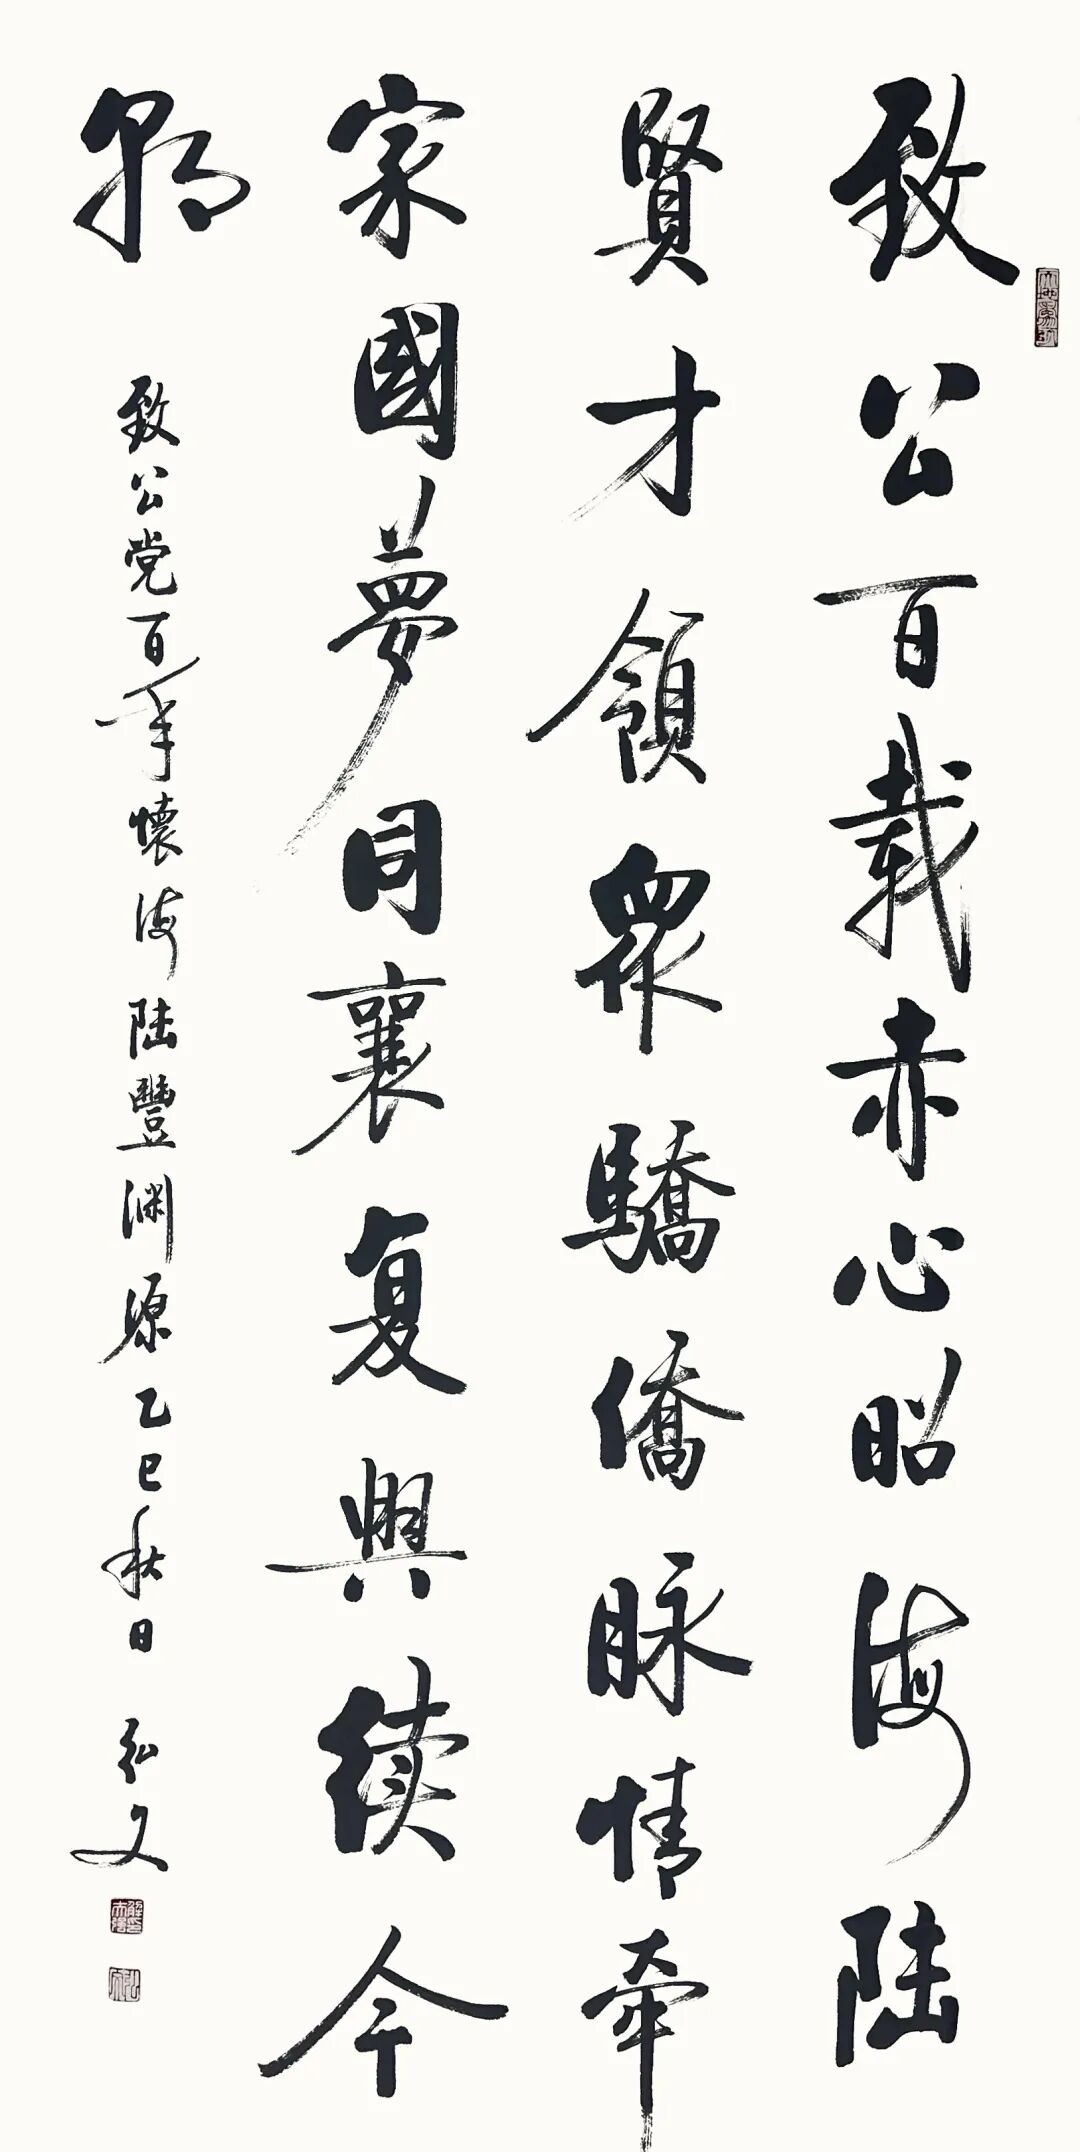 致公百载赤心昭海陆
賢才領眾驕僑脉情牵
家國夢同襄复興续今
朝
致公党百年懷海陆豐渊源乙巳秋日 弘文